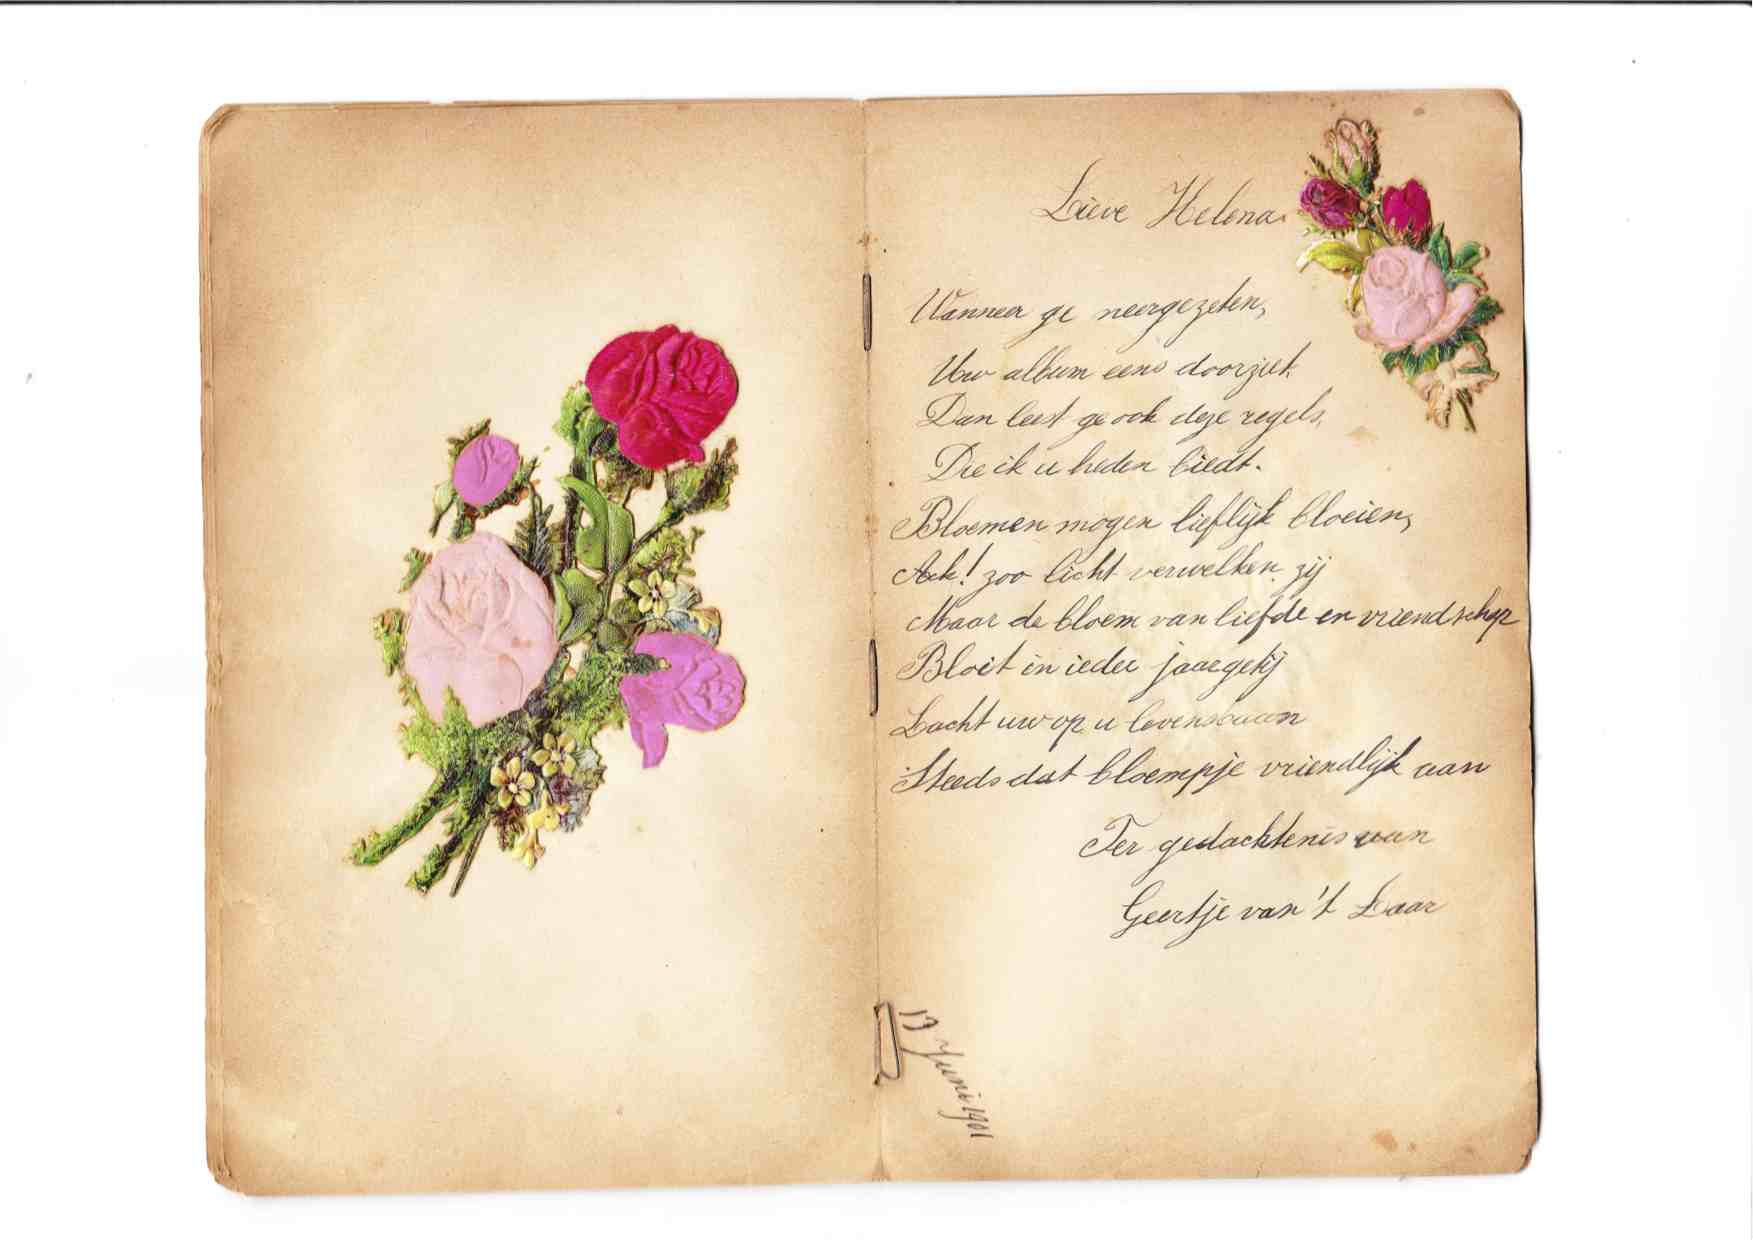 Lieve Helena.
Wanneer ge neergezeten,
Uw album eens doorziet
Dan leest ge ook deze regels,
Die ik u heden biedt.
Bloemen mogen lieflijk bloeien,
Ach! zoo licht verwelken zij
Maar de bloem van liefde en vriendschap
Bloit in ieder jaargetij
Lacht uw op u levensbaan
Steeds dat bloempje vriendlijk aan
Ter gedachtenis van
Geertje van 't Laar
13 Juni 1901